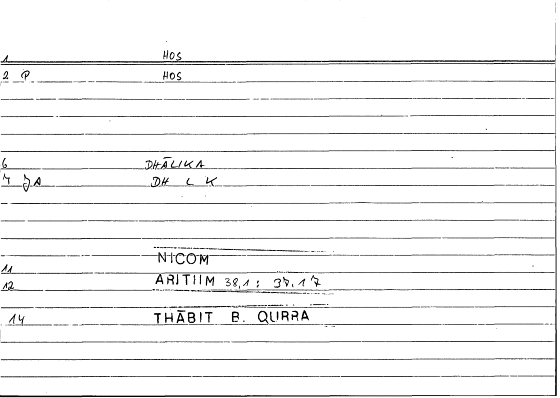 1 HOS
2 P HOS
6 DHĀLIKA
7 JA DH L K
11 NICOM
12 ARITIIM 38,1 : 37,17
14 THĀBIT B. QURRA